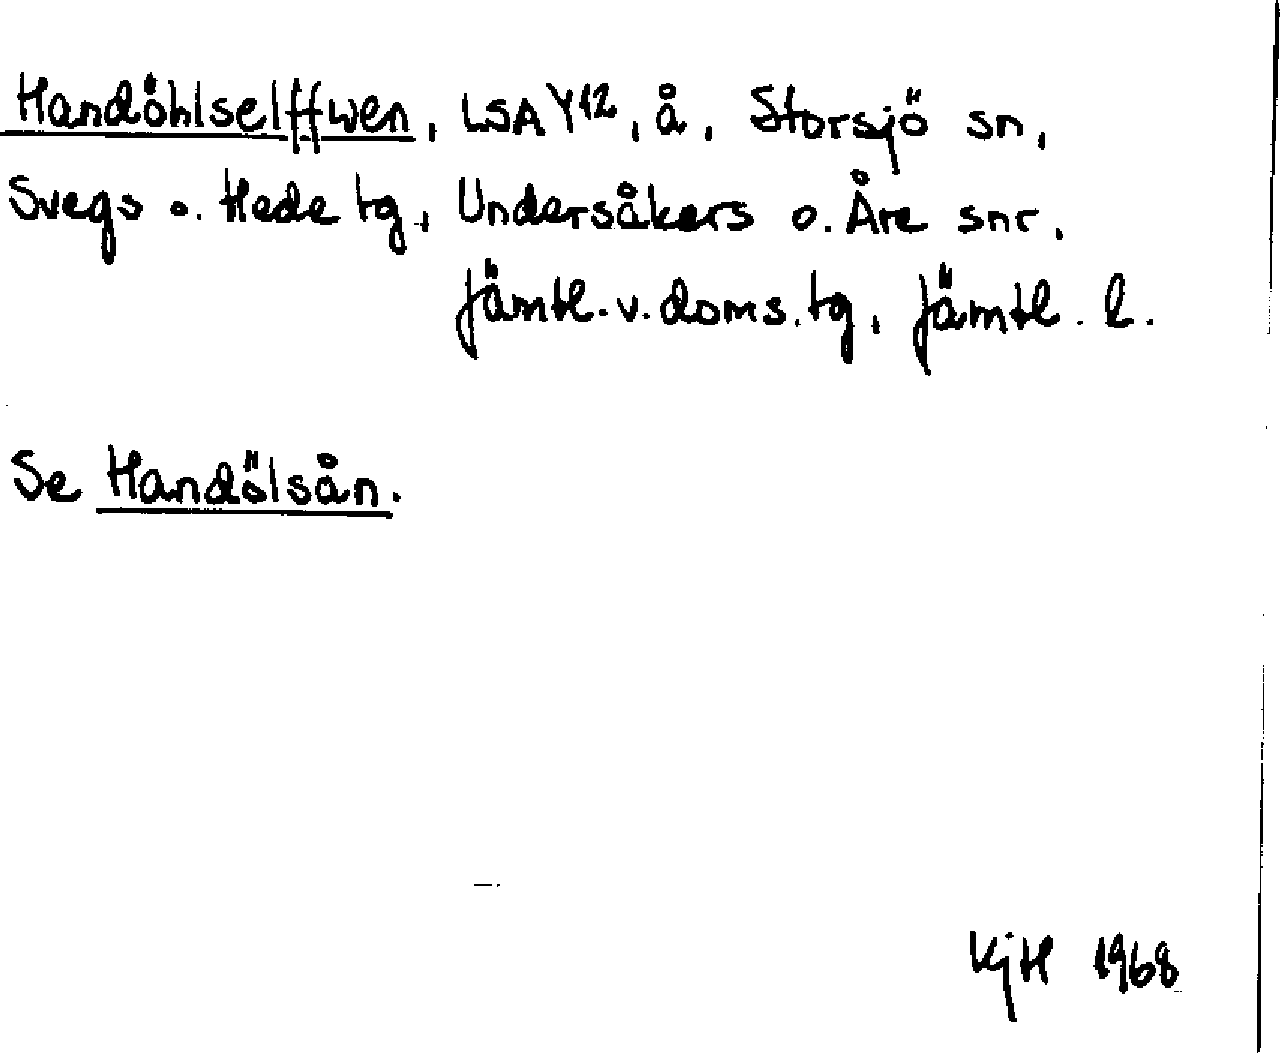 Handöhlselffwen, LSA Y12, å, Storsjö sn,
Svegs o. Hede tg, Undersåkers o. Åre snr,
Jämtl. v. doms. tg, Jämtl. l.
Se Handölsån.
KjH 1968